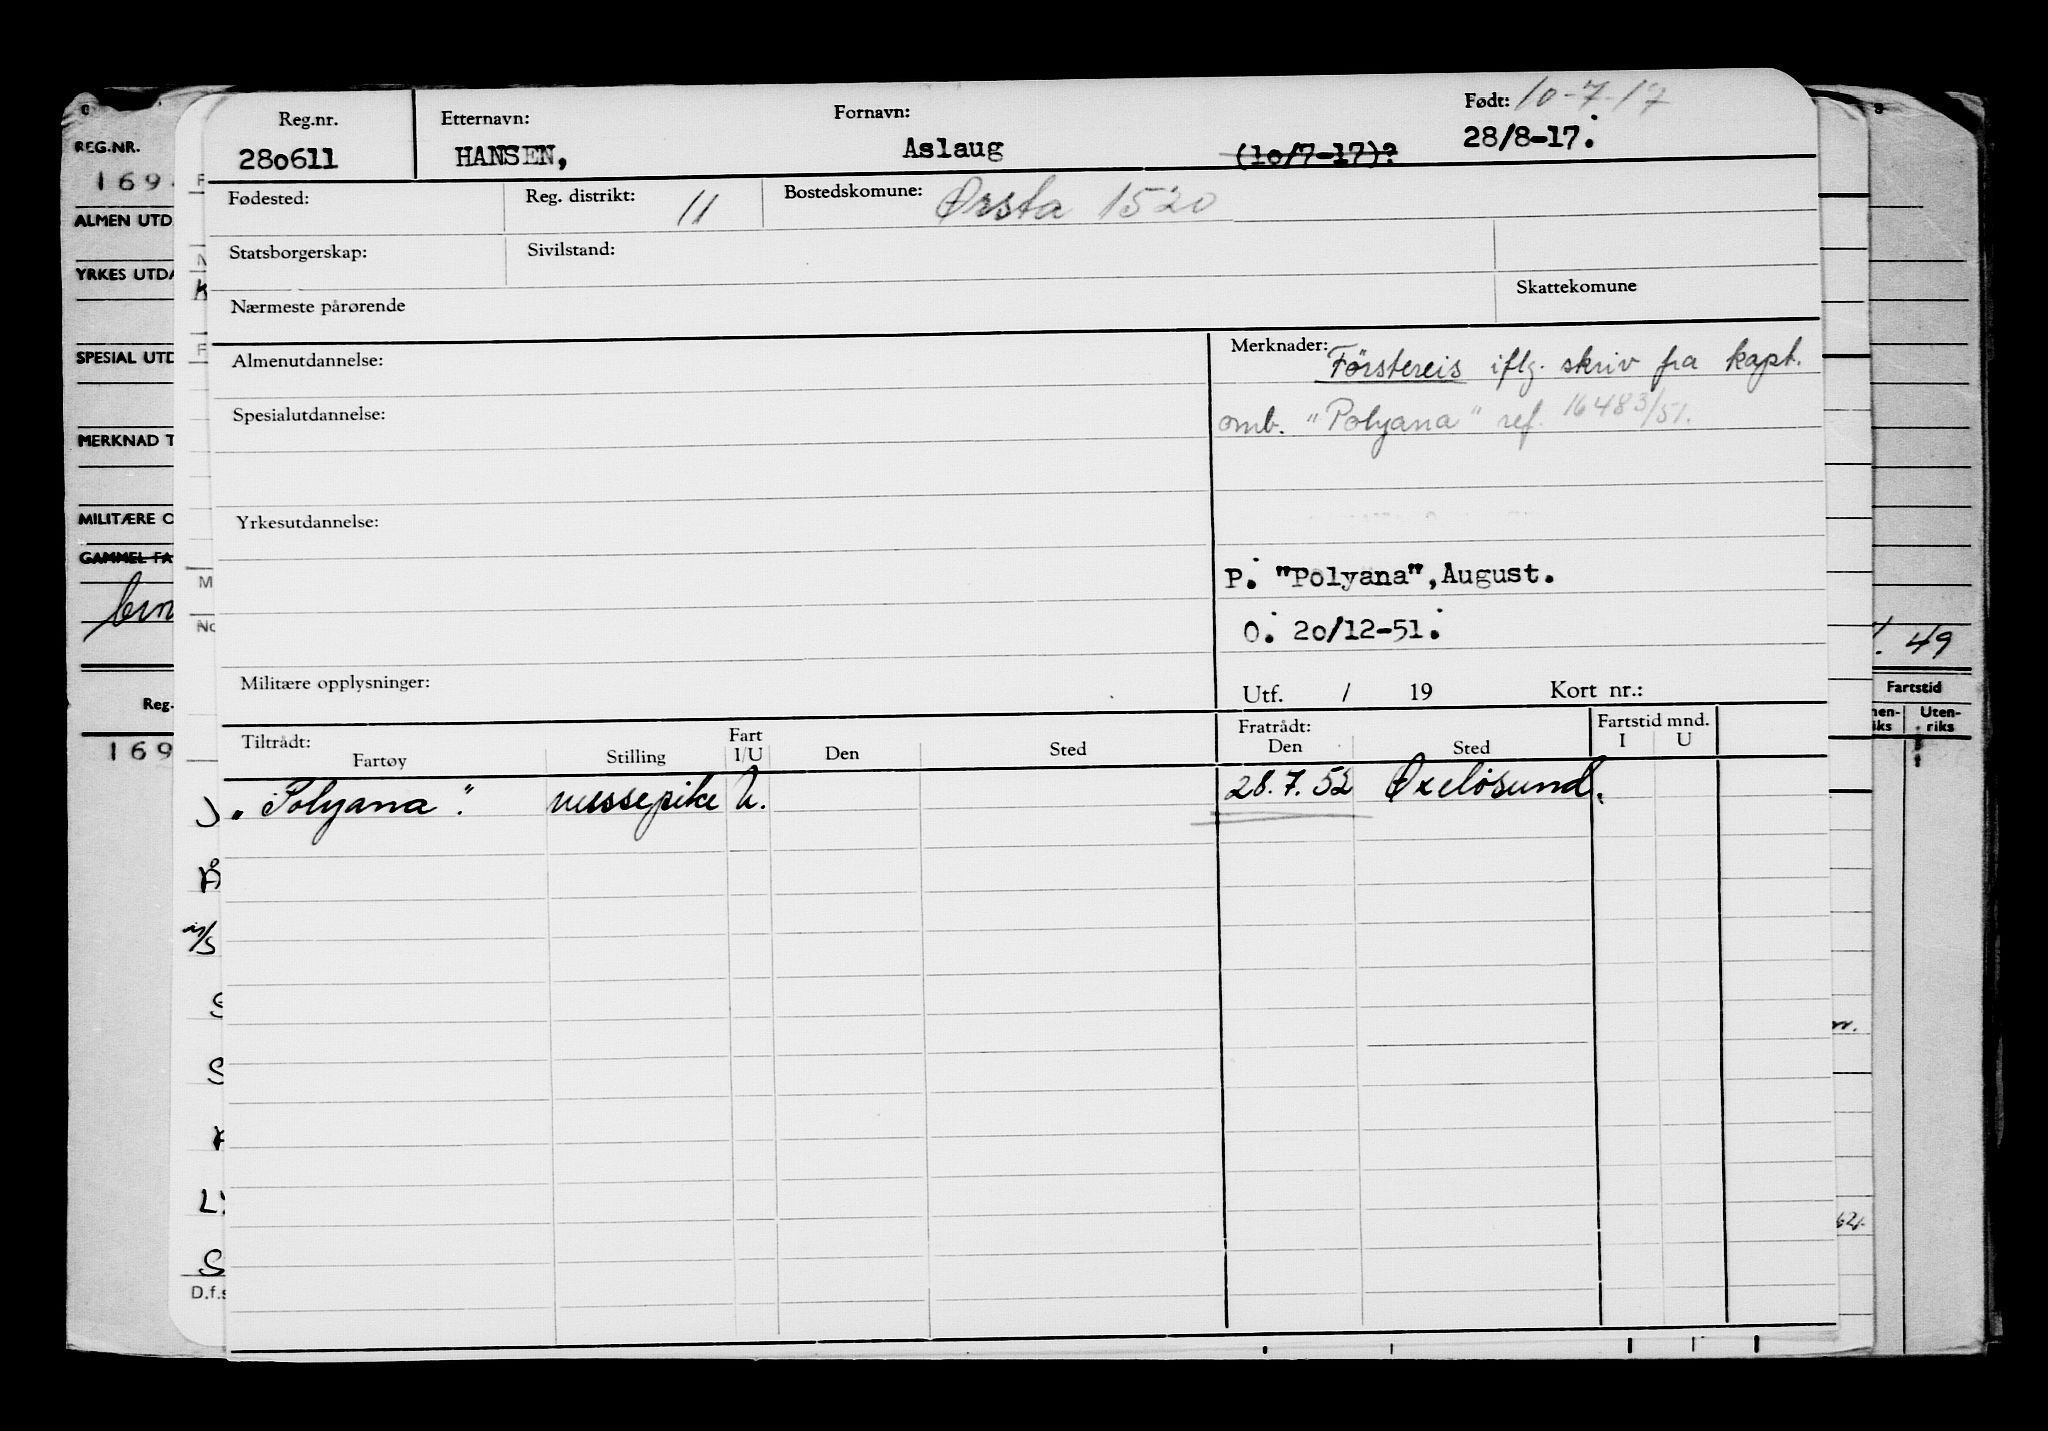 Reg.nr.
280611
Etternavn:
HANSEN,
Fornavn:
Aslaug
(10/7-17)?
Født: 10-7-17
28/8-17.
Fødested:
Reg. distrikt: 11
Bostedskomune: Ørsta 1520
Statsborgerskap:
Sivilstand:
Nærmeste pårørende
Skattekomune
Almenutdannelse:
Spesialutdannelse:
Yrkesutdannelse:
Militære opplysninger:
Merknader: Førstereis iflg. skriv fra kapt.
omb. "Polyana" ref. 16483/51.
P. "Polyana", August.
O. 20/12-51.
Utf. / 19 Kort nr.:
Tiltrådt:
Fartøy Stilling Fart I/U Den Sted
Fratrådt:
Den Sted
Fartstid mnd.
I U
"Polyana". messepike U. 28.7.52 Oxelösund.
REG.NR.
169
ALMEN UTD
YRKES UTDA
SPESIAL UTD
MERKNAD T
MILITÆRE O
GAMMEL FA
Reg.
169
M
No
D.f.s
49
Fartstid
Uten-
riks